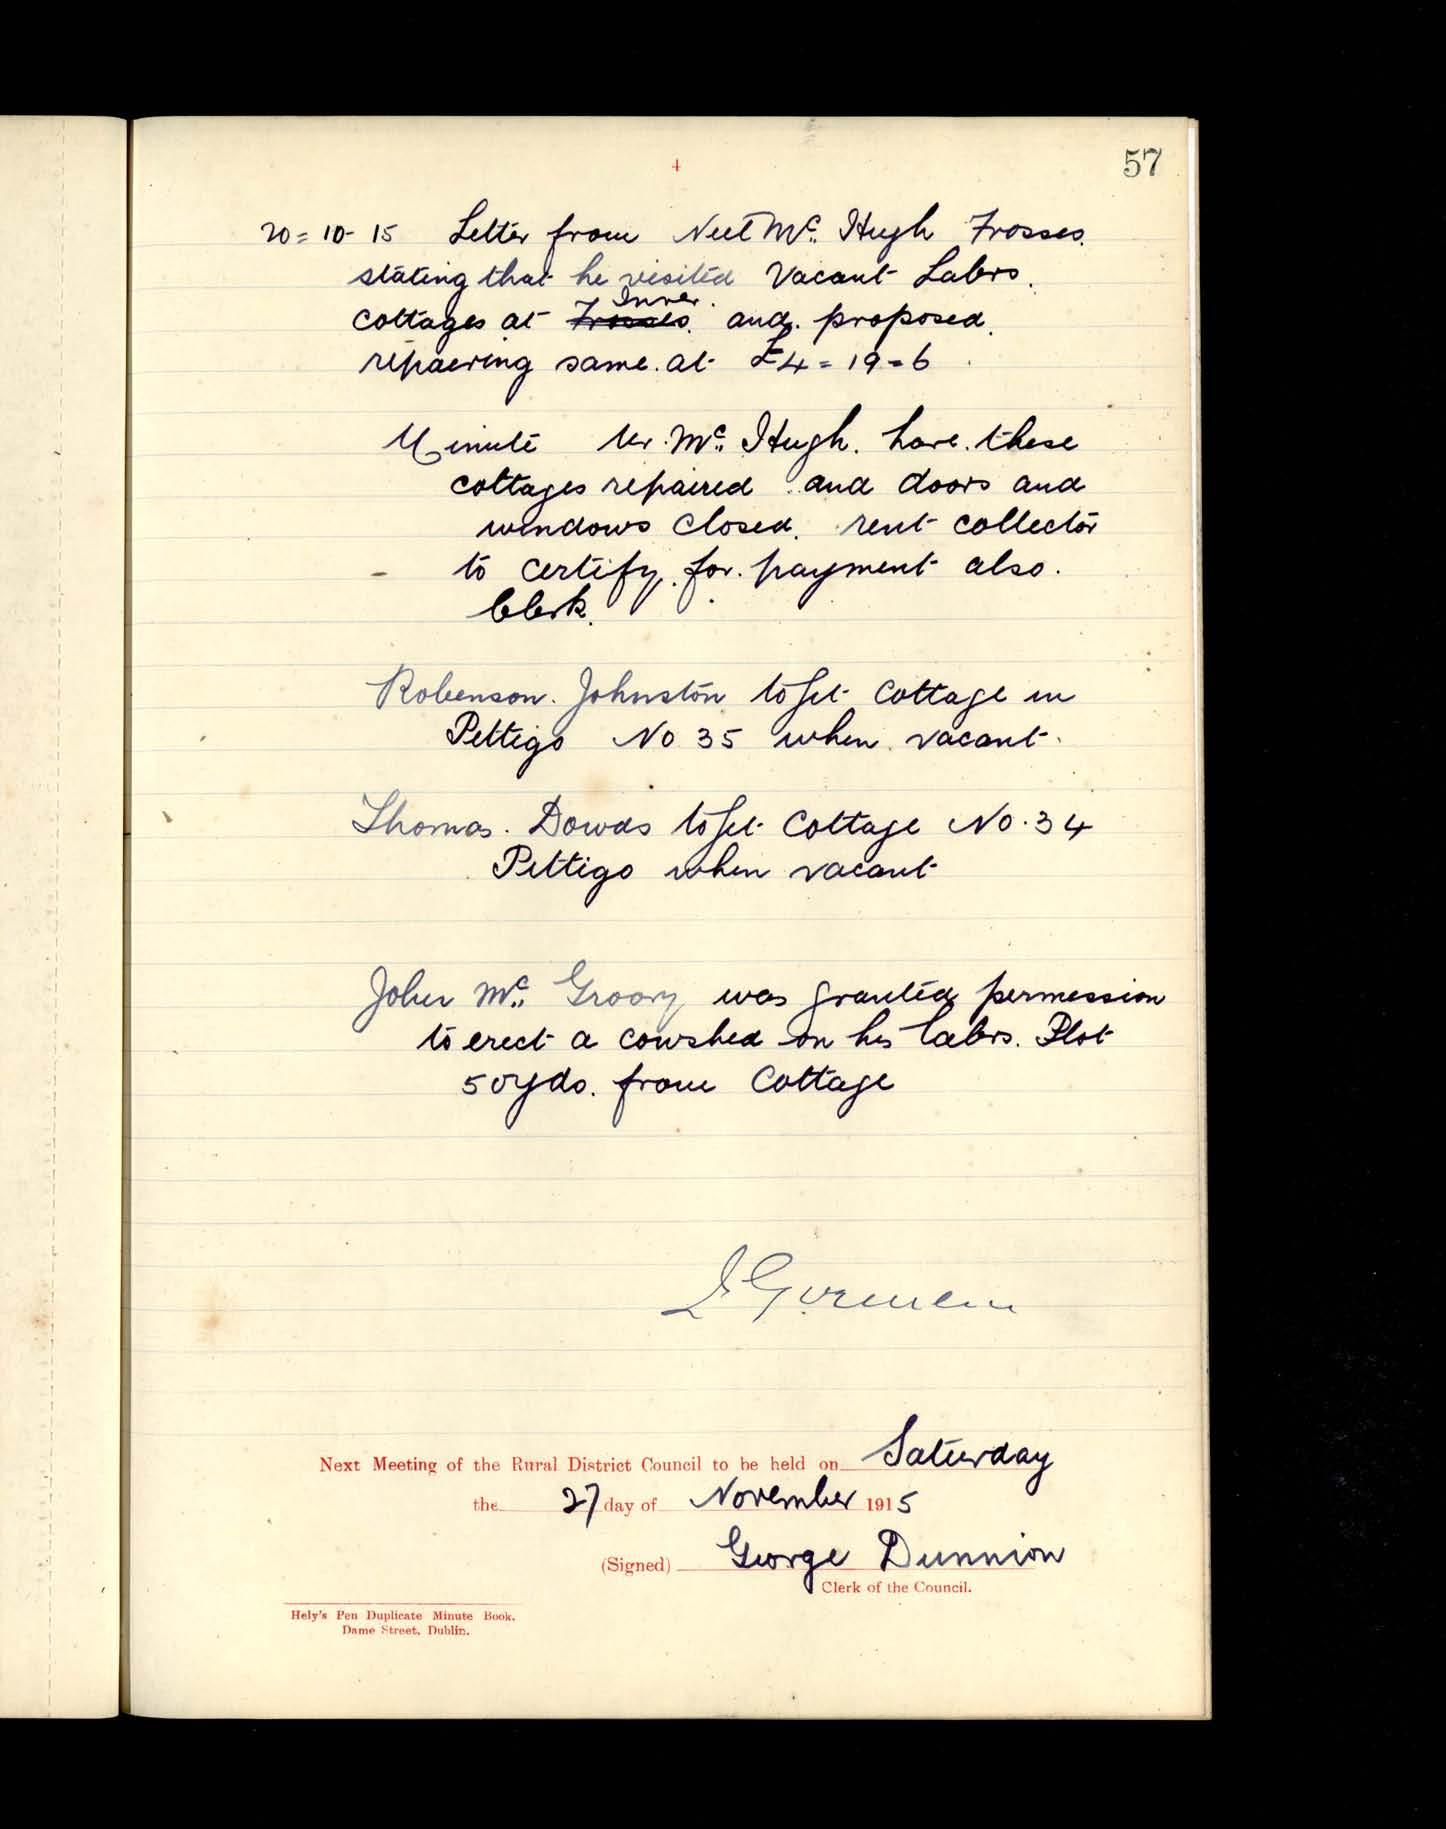 4
57
20=10-15 Letter from Neil Mc. Hugh Frosses.
stating that he visited Vacant Labrs.
Inver.
cottages at Frosses. and. proposed.
repairing same. at £4=19=6
Minute Mr. Mc. Hugh. have. these
cottages repaired and doors and
windows closed. rent collector
to certify. for. payment also.
Clerk.
Robenson. Johnston to get cottage in
Pettigo No 35 when vacant.
Thomas. Dowds to get Cottage No. 34
Pettigo when vacant
John Mc. Groory was granted permission
to erect a cowshed on his labrs. Plot
50yds. from Cottage
Next Meeting of the Rural District Council to be held on Saturday
the 27 day of November 1915
(Signed) George Dunnion
Clerk of the Council.
Hely's Pen Duplicate Minute Book.
Dame Street, Dublin.